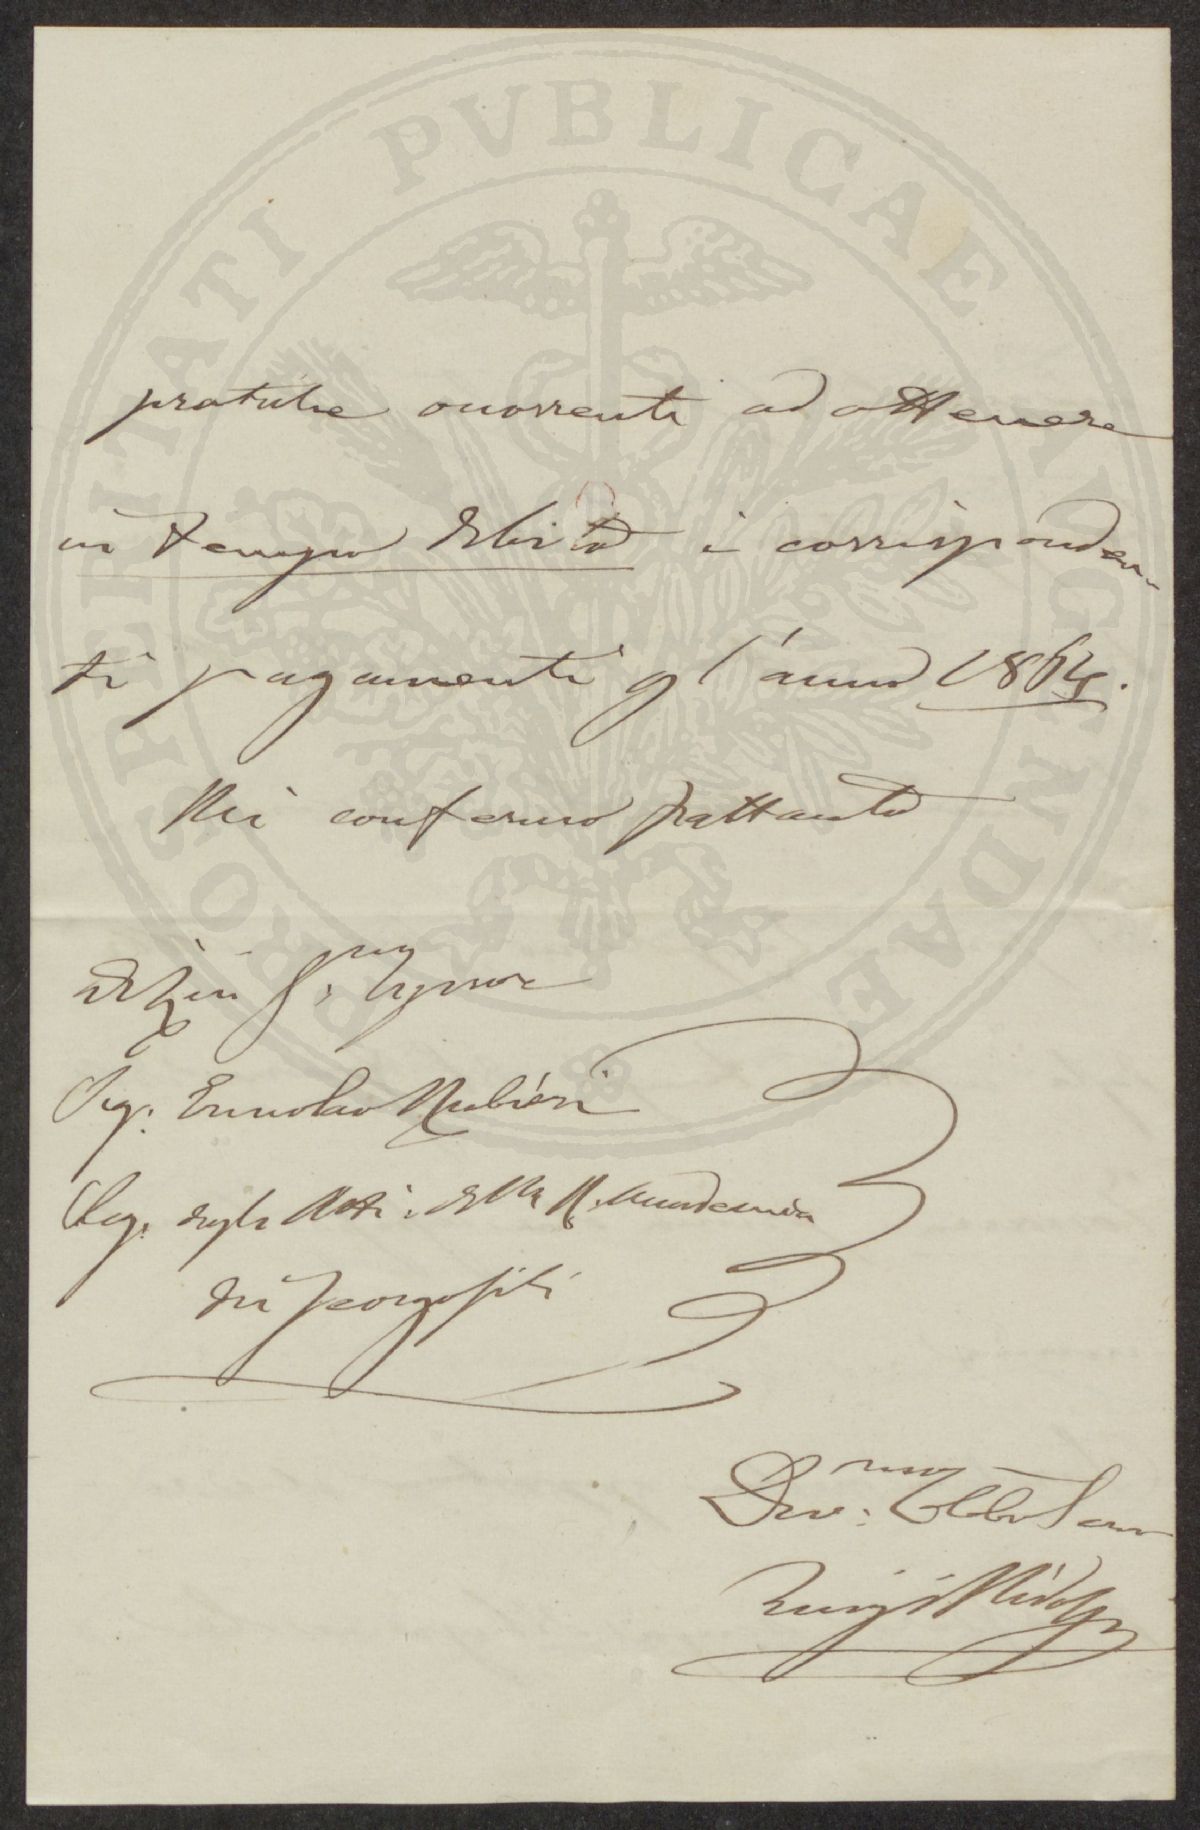 PROSPERITATI PVBLICAE AVGENDAE
pratiche occorrenti ad ottenere
in tempo debito i corrisponden-
ti pagamenti p l'anno 1864.
Mi confermo frattanto
Di Lei
Sig. Ermolao Rubieri
Seg. degli Atti della R. Accademia
dei Georgofili
Dev.mo Obbl. Servo
Luigi Ridolfi